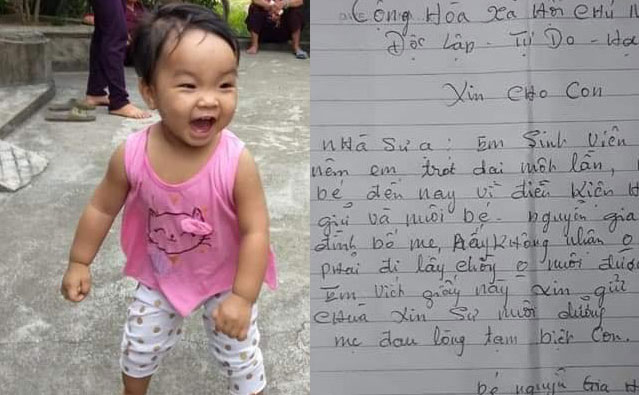 Cộng Hòa Xã Hội Chủ N
Độc Lập - Tự Do - Hạ
Xin cho con
Nhà sư ạ: Em Sinh viên
nêm em trót dại một lần,
bé đến nay vì điều kiên
giữ và nuôi bé. nguyễn gia
đình bố mẹ, không nhân
phải đi lấy chồng nuôi được
Em vich giấy này xin gửi
chua xin sư nuôi dưỡng
mẹ đau lòng tạm biệt con.
bé nguyễn gia H